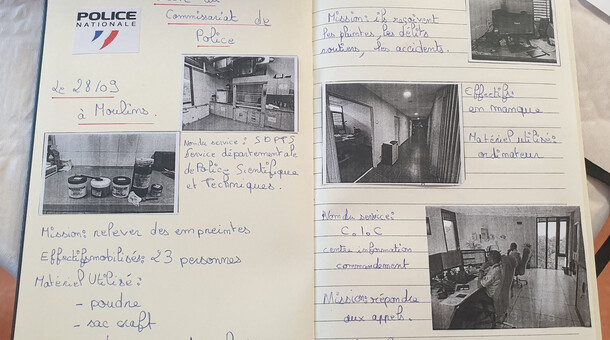 POLICE
NATIONALE
Commissariat de
Police
Le 28/09
à Moulins.
Nom du service: SDPTS
Service départementale
de Police Scientifique
et Techniques.
Mission: relever des empreintes
Effectifs mobilisés: 23 personnes
Matériel Utilisé:
- poudre
- sac craft
Mission: ils reçoivent
les plaintes, les délits
routiers, les accidents.
Effectifs
en manque
Matériel utilisé:
ordinateur
Nom du service:
C.I.C
centre information
commandement
Mission: répondre
aux appels.